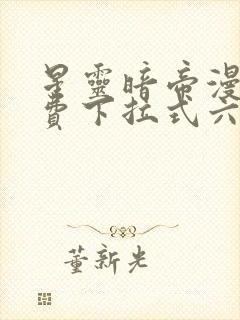 星靈暗帝漫
費下拉式六
董新光